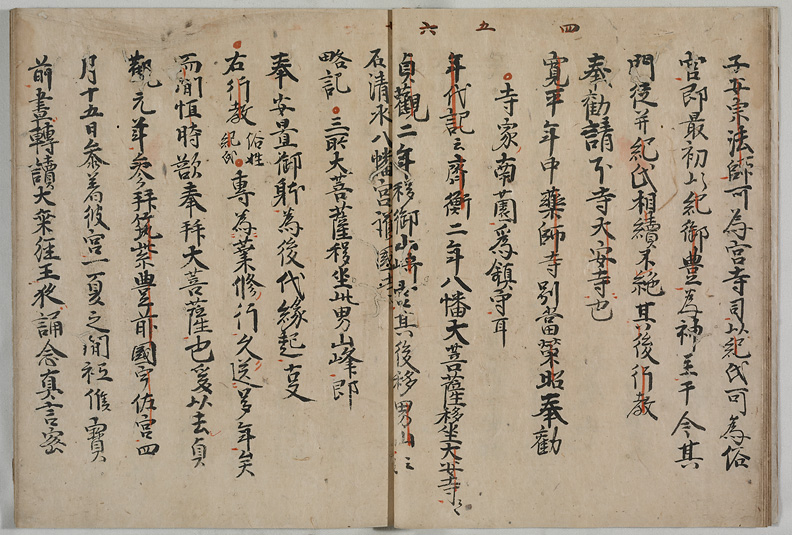 四 五 六
子安東法師可為宮寺司以紀氏可為俗
官即最初以紀御豊為神主于今其
門徒并紀氏相續不絶其後行教
奉勸請下寺大安寺也
寛平年中藥師寺別當榮昭奉勸
寺家南薗為鎮守耳
年代記云齊衡二年八幡大菩薩移坐大安寺云々
貞觀二年移御山崎其後移男山云々
石清水八幡宮護國寺
略記 三所大菩薩移坐此男山峰即
奉安置御躰為後代縁起
右行教俗姓紀氏專為業修行久送多年矣
而間恒時欲奉拜大菩薩也爰以去貞
觀元年参拜筑紫豊前國宇佐宮四
月十五日参着彼宮一夏之間祗候寶
前晝轉讀大乘經王夜誦念真言密